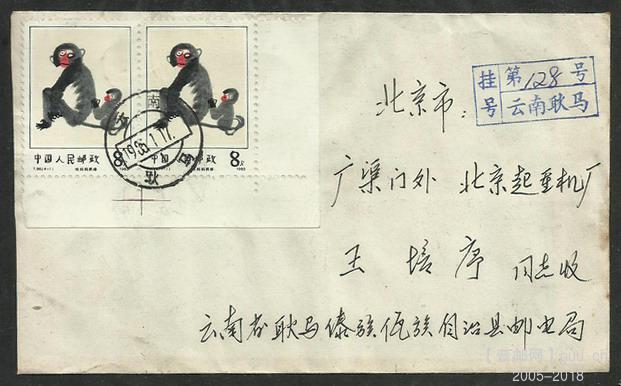 中国人民邮政 8分
中国人民邮政 8分
南
挂号
第128号
云南耿马
北京市：
广渠门外 北京起重机厂
王培序 同志收
云南省耿马傣族佤族自治县邮电局
2005-2018